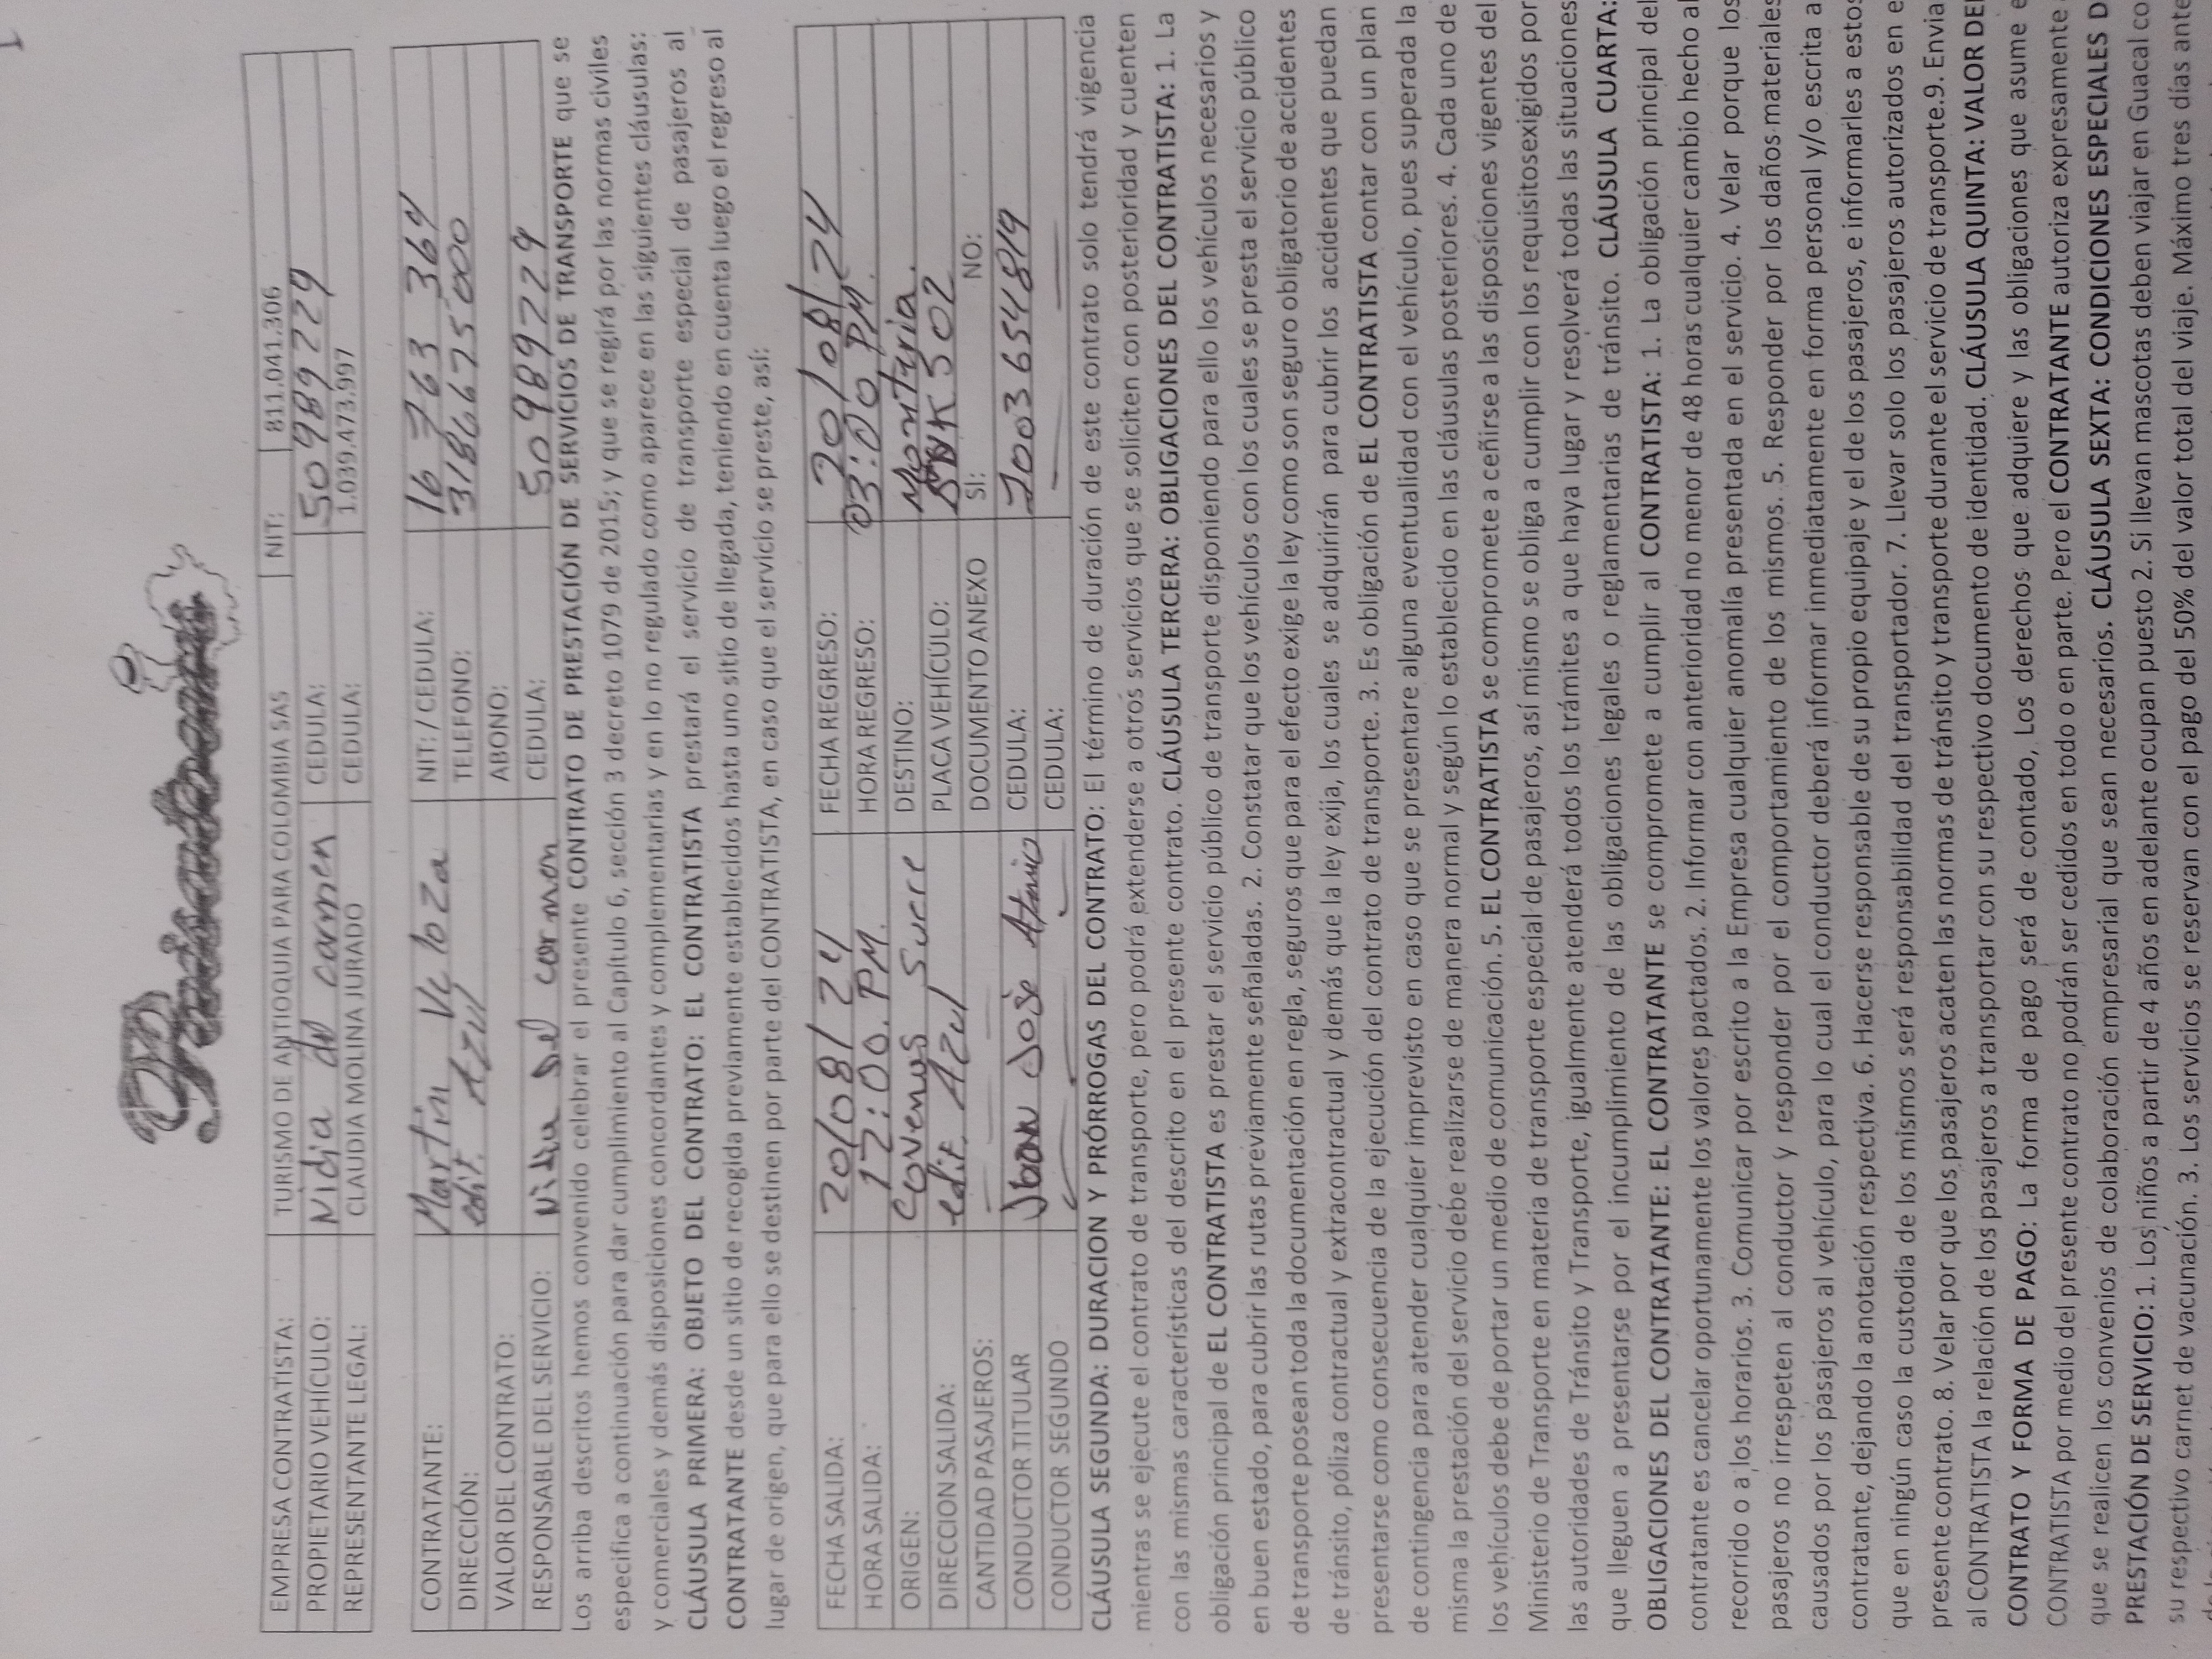 EMPRESA CONTRATISTA: TURISMO DE ANTIOQUIA PARA COLOMBIA SAS NIT: 811.041.306
PROPIETARIO VEHÍCULO: Nidia del carmen CEDULA: 50989229
REPRESENTANTE LEGAL: CLAUDIA MOLINA JURADO CEDULA: 1.039.473.997
CONTRATANTE: Martin Veloza NIT: / CEDULA: 16 763 364
DIRECCIÓN: edif. Azul TELEFONO: 3186675000
VALOR DEL CONTRATO: ABONO:
RESPONSABLE DEL SERVICIO: Nidia del carmen CEDULA: 50989229
Los arriba descritos hemos convenido celebrar el presente CONTRATO DE PRESTACIÓN DE SERVICIOS DE TRANSPORTE que se
especifica a continuación para dar cumplimiento al Capítulo 6, sección 3 decreto 1079 de 2015; y que se regirá por las normas civiles
y comerciales y demás disposiciones concordantes y complementarias y en lo no regulado como aparece en las siguientes cláusulas:
CLÁUSULA PRIMERA: OBJETO DEL CONTRATO: EL CONTRATISTA prestará el servicio de transporte especial de pasajeros al
CONTRATANTE desde un sitio de recogida previamente establecidos hasta uno sitio de llegada, teniendo en cuenta luego el regreso al
lugar de origen, que para ello se destinen por parte del CONTRATISTA, en caso que el servicio se preste, así:
FECHA SALIDA: 20/08/24 FECHA REGRESO: 20/08/24
HORA SALIDA: 12:00.PM. HORA REGRESO: 03:00 PM.
ORIGEN: coveñas Sucre DESTINO: Monteria.
DIRECCION SALIDA: edif. Azul PLACA VEHÍCULO: K302
CANTIDAD PASAJEROS: DOCUMENTO ANEXO SI: NO:
CONDUCTOR TITULAR José CEDULA: 1003654819
CONDUCTOR SEGUNDO CEDULA:
CLÁUSULA SEGUNDA: DURACION Y PRÓRROGAS DEL CONTRATO: El término de duración de este contrato solo tendrá vigencia
mientras se ejecute el contrato de transporte, pero podrá extenderse a otros servicios que se soliciten con posterioridad y cuenten
con las mismas características del descrito en el presente contrato. CLÁUSULA TERCERA: OBLIGACIONES DEL CONTRATISTA: 1. La
obligación principal de EL CONTRATISTA es prestar el servicio público de transporte disponiendo para ello los vehículos necesarios y
en buen estado, para cubrir las rutas previamente señaladas. 2. Constatar que los vehículos con los cuales se presta el servicio público
de transporte posean toda la documentación en regla, seguros que para el efecto exige la ley como son seguro obligatorio de accidentes
de tránsito, póliza contractual y extracontractual y demás que la ley exija, los cuales se adquirirán para cubrir los accidentes que puedan
presentarse como consecuencia de la ejecución del contrato de transporte. 3. Es obligación de EL CONTRATISTA contar con un plan
de contingencia para atender cualquier imprevisto en caso que se presentare alguna eventualidad con el vehículo, pues superada la
misma la prestación del servicio debe realizarse de manera normal y según lo establecido en las cláusulas posteriores. 4. Cada uno de
los vehículos debe de portar un medio de comunicación. 5. EL CONTRATISTA se compromete a ceñirse a las disposiciones vigentes del
Ministerio de Transporte en materia de transporte especial de pasajeros, así mismo se obliga a cumplir con los requisitosexigidos por
las autoridades de Tránsito y Transporte, igualmente atenderá todos los trámites a que haya lugar y resolverá todas las situaciones
que lleguen a presentarse por el incumplimiento de las obligaciones legales o reglamentarias de tránsito. CLÁUSULA CUARTA:
OBLIGACIONES DEL CONTRATANTE: EL CONTRATANTE se compromete a cumplir al CONTRATISTA: 1. La obligación principal del
contratante es cancelar oportunamente los valores pactados. 2. Informar con anterioridad no menor de 48 horas cualquier cambio hecho al
recorrido o a los horarios. 3. Comunicar por escrito a la Empresa cualquier anomalía presentada en el servicio. 4. Velar porque los
pasajeros no irrespeten al conductor y responder por el comportamiento de los mismos. 5. Responder por los daños materiales
causados por los pasajeros al vehículo, para lo cual el conductor deberá informar inmediatamente en forma personal y/o escrita a
contratante, dejando la anotación respectiva. 6. Hacerse responsable de su propio equipaje y el de los pasajeros, e informarles a estos
que en ningún caso la custodia de los mismos será responsabilidad del transportador. 7. Llevar solo los pasajeros autorizados en e
presente contrato. 8. Velar por que los pasajeros acaten las normas de tránsito y transporte durante el servicio de transporte.9. Envia
al CONTRATISTA la relación de los pasajeros a transportar con su respectivo documento de identidad. CLÁUSULA QUINTA: VALOR DEL
CONTRATO Y FORMA DE PAGO: La forma de pago será de contado, Los derechos que adquiere y las obligaciones que asume e
CONTRATISTA por medio del presente contrato no podrán ser cedidos en todo o en parte. Pero el CONTRATANTE autoriza expresamente
que se realicen los convenios de colaboración empresarial que sean necesarios. CLÁUSULA SEXTA: CONDICIONES ESPECIALES D
PRESTACIÓN DE SERVICIO: 1. Los niños a partir de 4 años en adelante ocupan puesto 2. Si llevan mascotas deben viajar en Guacal co
su respectivo carnet de vacunación. 3. Los servicios se reservan con el pago del 50% del valor total del viaje. Máximo tres días ante